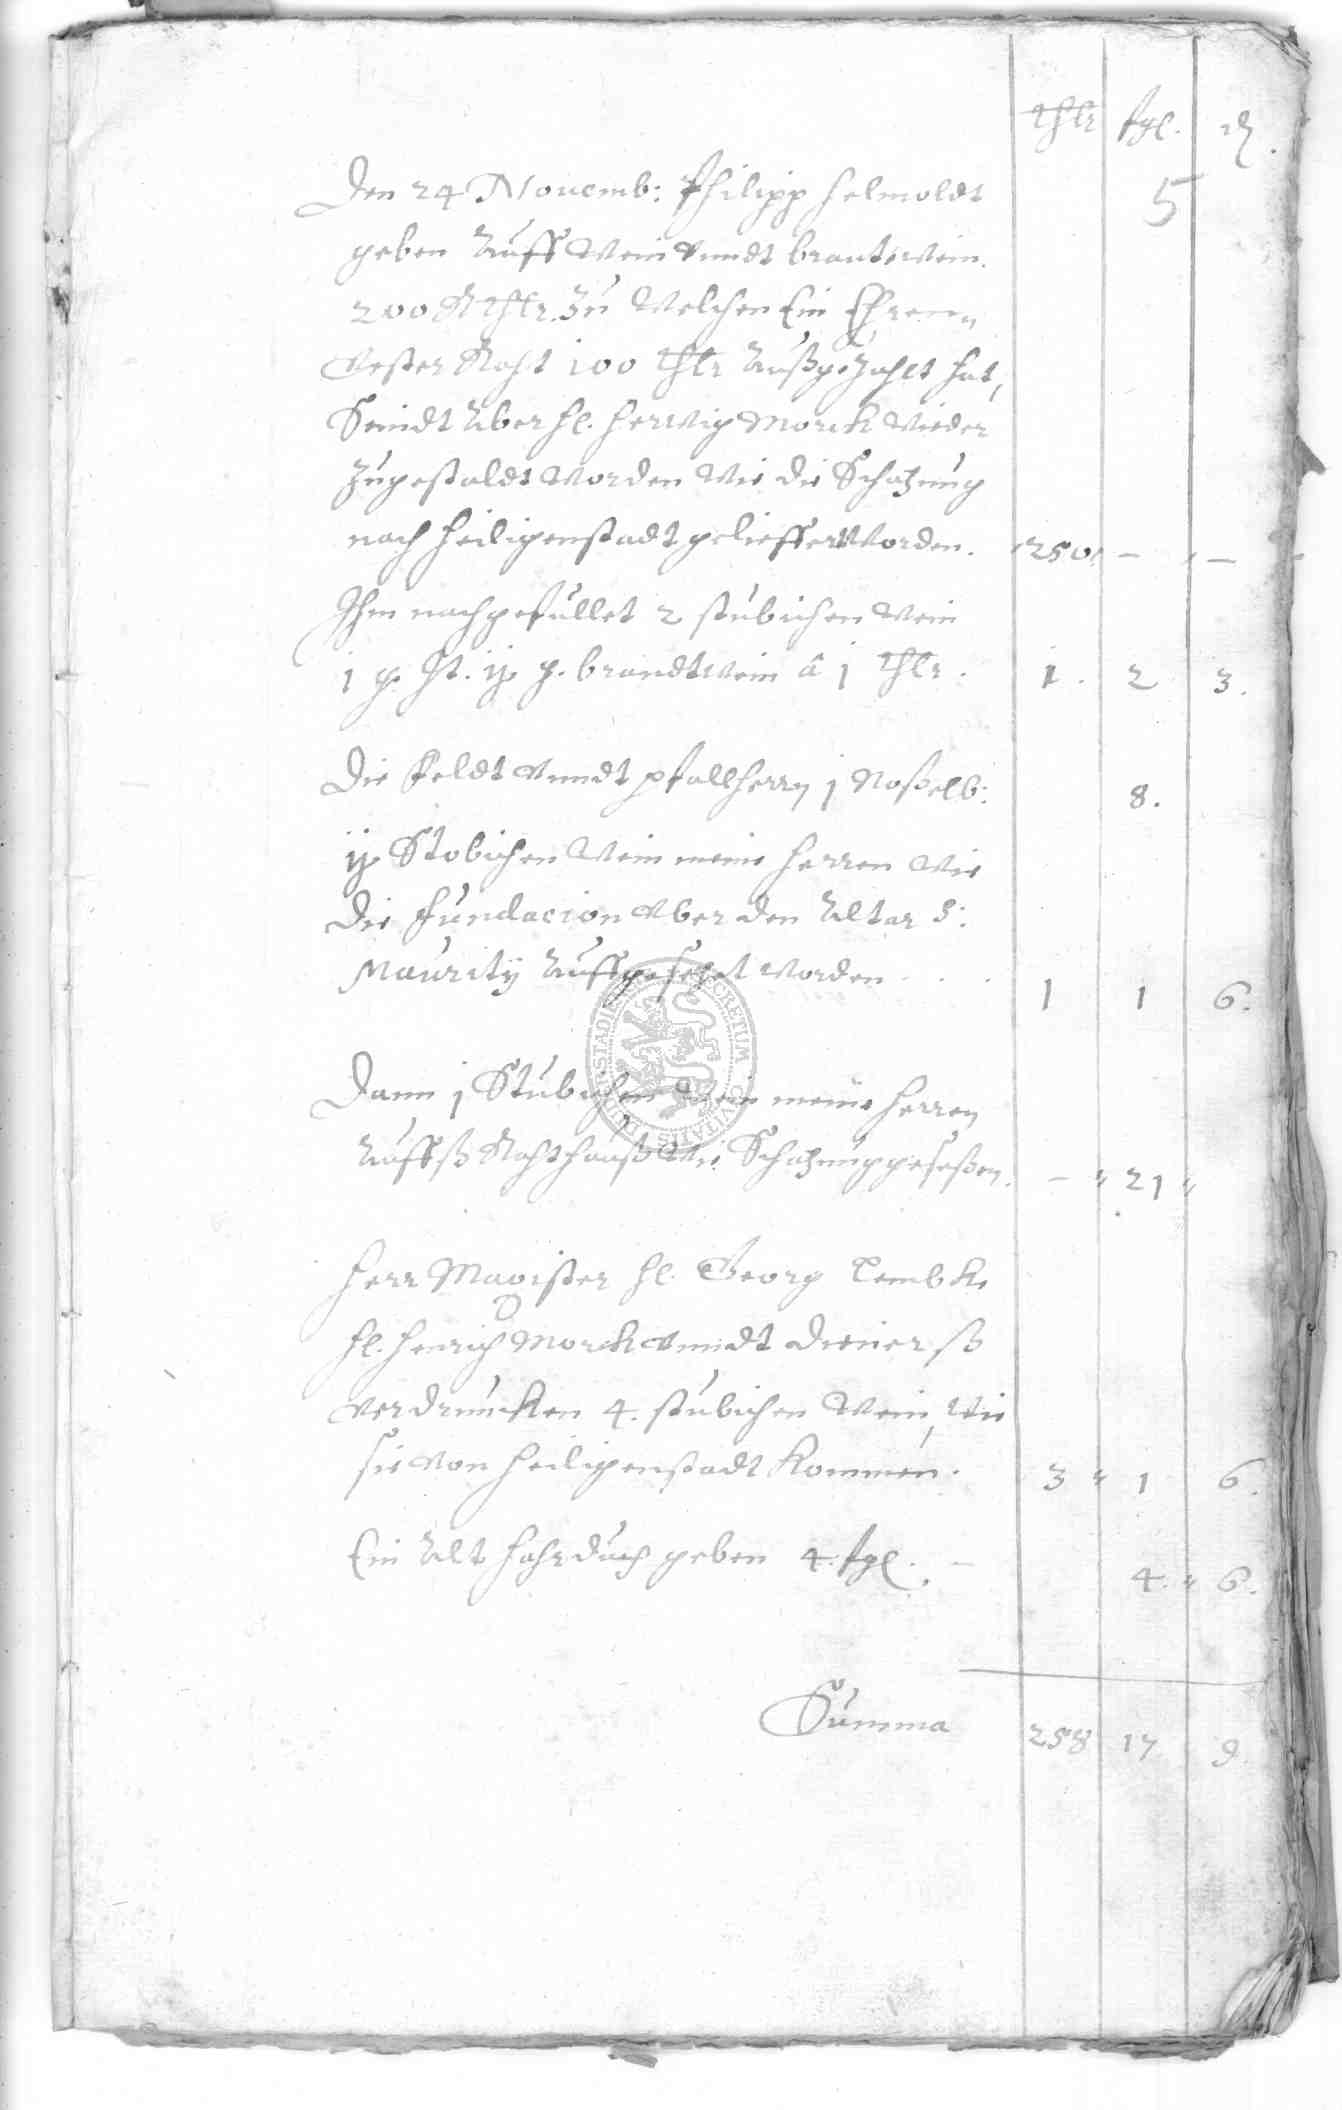 thlr fgl. ₰.
5
Den 24 Nouemb: Philipp Helmoldt
geben Auff Wein Vnndt brantewein
200 Rthlr. Zu Welchen Ein Ehrenn
Vester Raht 100 thlr Außgezahlt hat,
Seindt Uber hl. Herwig Morck Wieder
Zugestaldt Worden Wie die Schatzung
nach Heiligenstadt gelieffert Worden. 250. — —
Ihm nachgefullet 2 stubichen Wein
1 g. ht. ij g. brandtwein â 1 thlr. 1. 2 3.
Die Feldt Vnndt pfallherrn 1 Noßelb: 8.
ij Stobichen Wein meine Herren Wie
die Fundacion Vber den Altar S:
Maurity Auffgesetzet Worden . . . 1 1 6.
Dann 1 Stubichen Wein meine Herren
Auffß Rahthauß Wie Schatzung geseßen. — 21
Herr Magister hl. Georg Lembke
hl. Henrich Morck Vnndt dienerß
Verdruncken 4. stubichen Wein, Wie
sie Von Heiligenstadt Kommen. 3 1 6.
Ein Alt Hahrduch geben 4. fgl. — 4. 6.
Summa 258 17 9
SECRETUM CIVITATIS DUDERSTADIENSIS